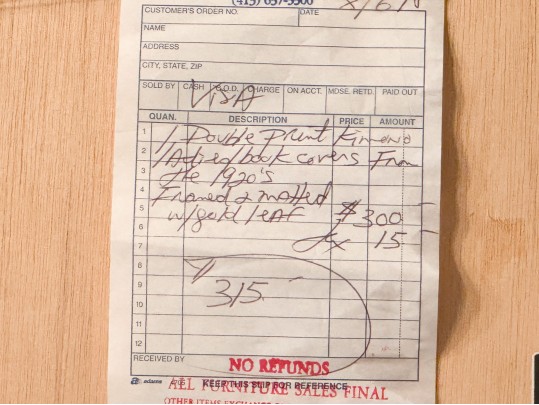 CUSTOMER'S ORDER NO. DATE
NAME
ADDRESS
CITY, STATE, ZIP
SOLD BY CASH C.O.D. CHARGE ON ACCT. MDSE. RETD. PAID OUT
VISA
QUAN. DESCRIPTION PRICE AMOUNT
1 1 Double print Kimono
2 book covers From
3 the 1920's
4 Framed & matted
5 w/gold leaf $300
6 tx 15
7
8
9 315
10
11
12
RECEIVED BY
NO REFUNDS
adams KEEP THIS SLIP FOR REFERENCE
ALL FURNITURE SALES FINAL
OTHER ITEMS